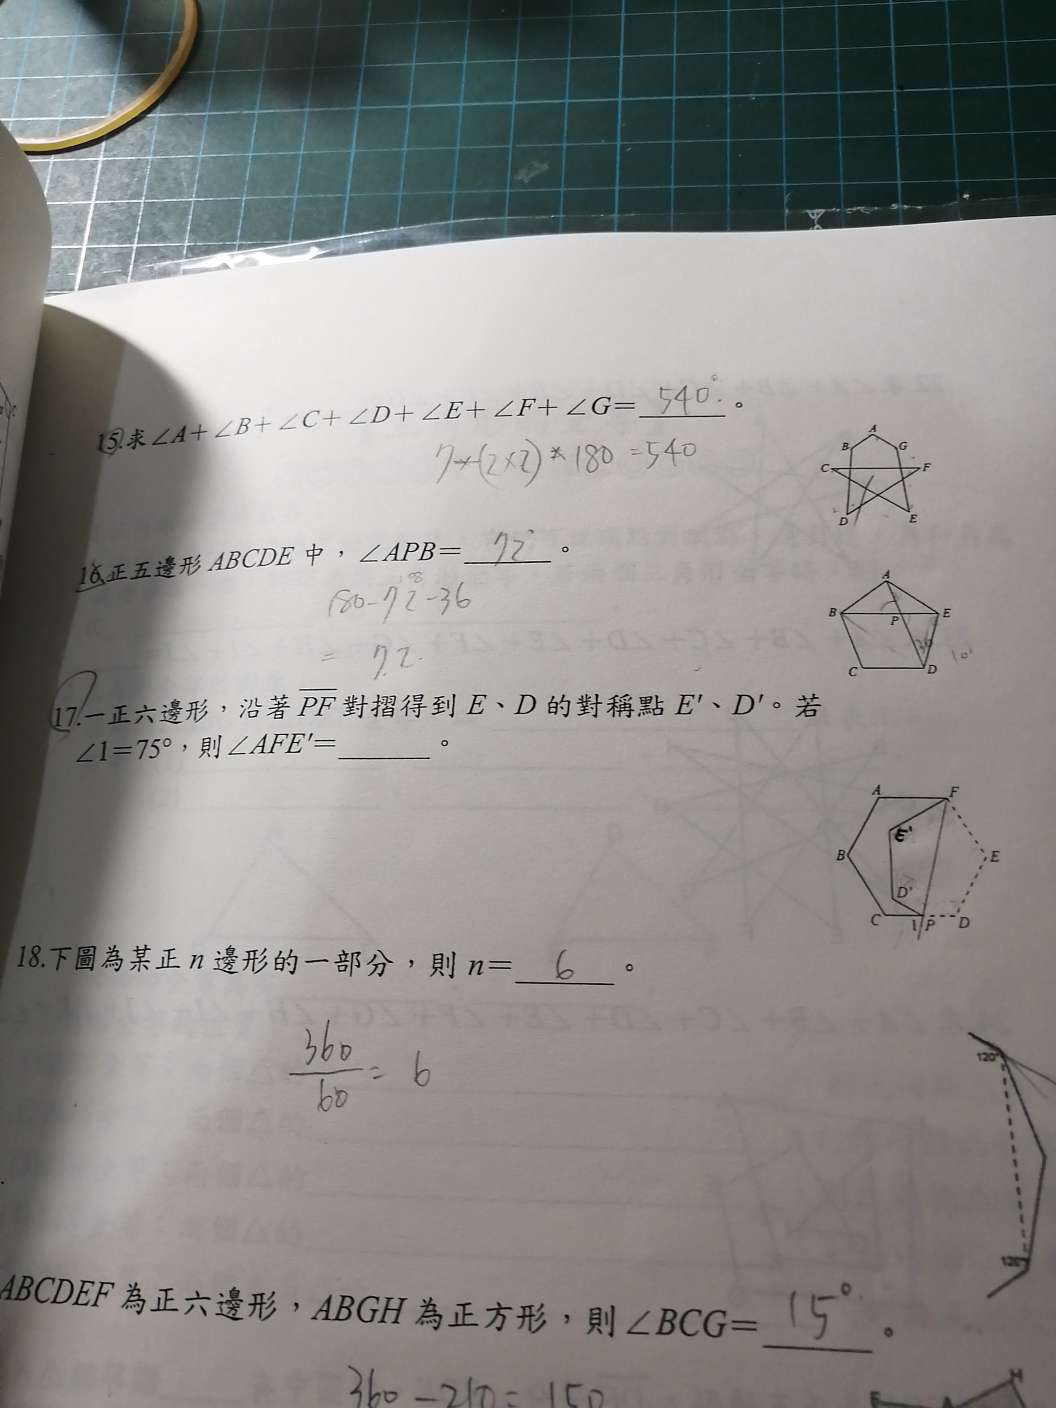 15.求∠A+∠B+∠C+∠D+∠E+∠F+∠G=540°。
7-(2×2)*180=540
A
B
G
C
F
D
E
16.正五邊形ABCDE中，∠APB=72°。
180-72-36
=72.
A
B
P
E
36
C
D
17.一正六邊形，沿著PF對摺得到E、D的對稱點E'、D'。若
∠1=75°，則∠AFE'=______。
A
F
E'
B
E
D'
C
1
P
D
18.下圖為某正n邊形的一部分，則n=6。
360
60
=6
120°
120°
ABCDEF為正六邊形，ABGH為正方形，則∠BCG=15°。
360-210=150
H